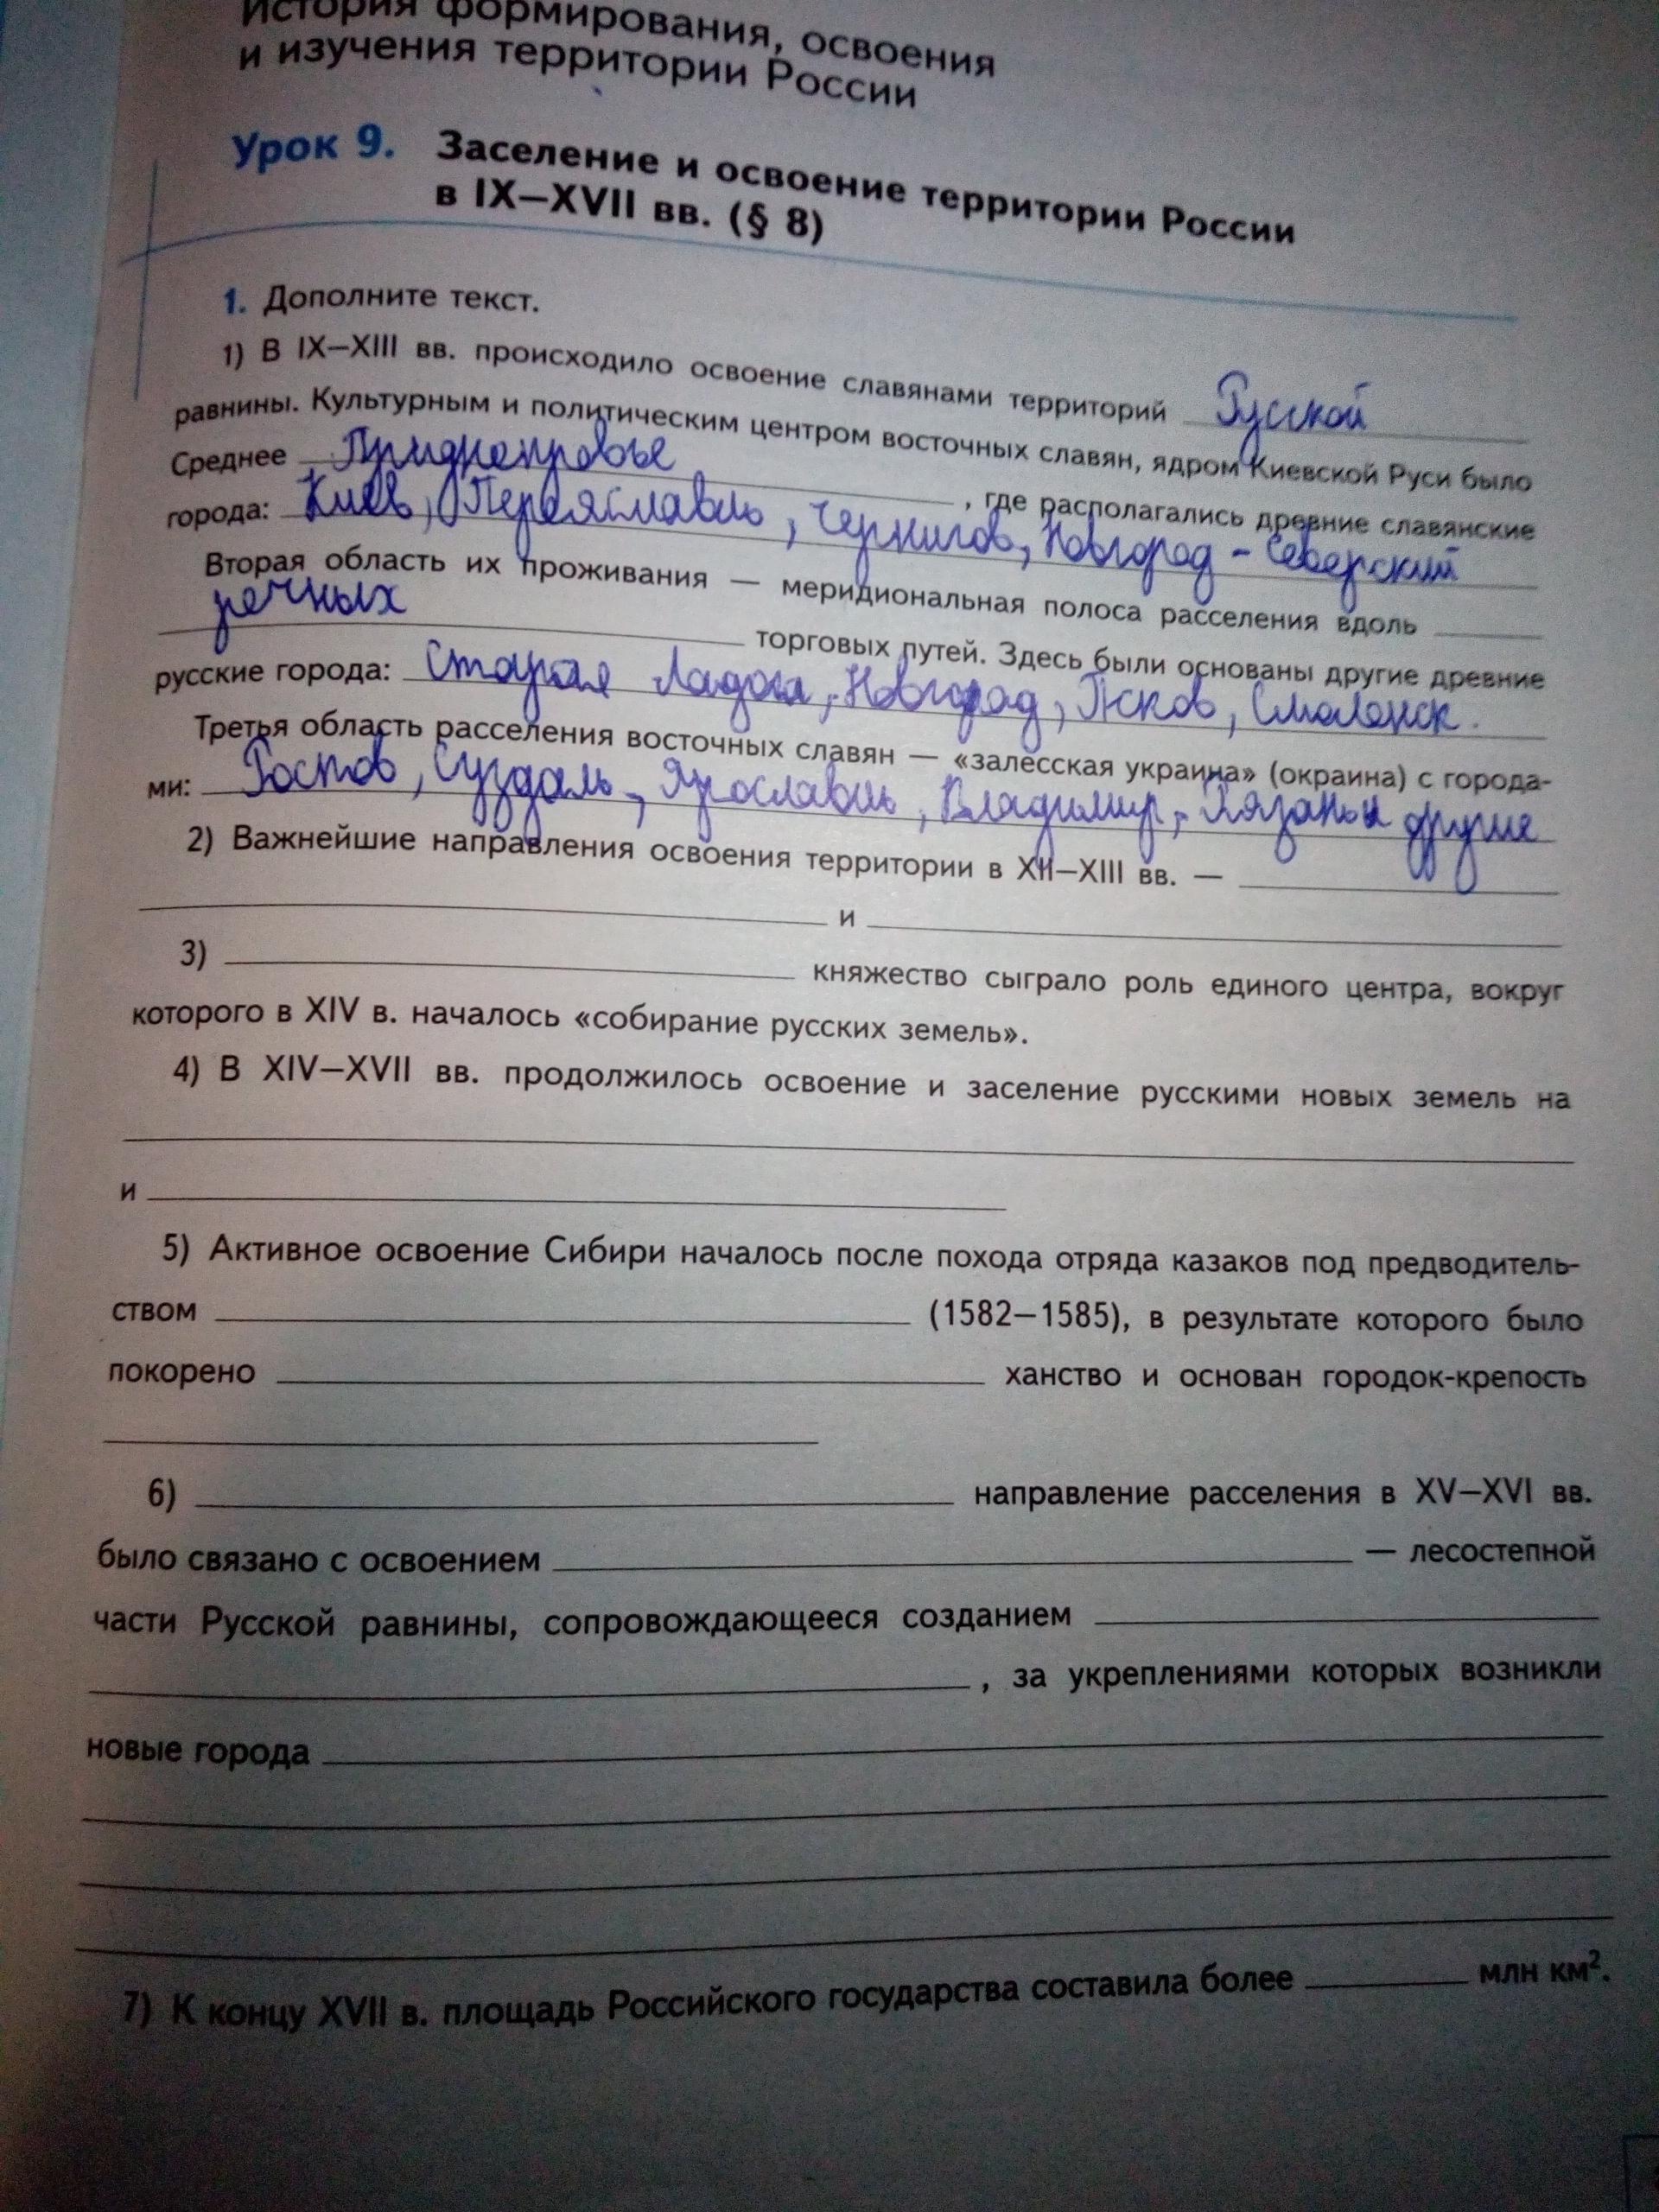 История формирования, освоения
и изучения территории России
Урок 9. Заселение и освоение территории России
в IX—XVII вв. (§ 8)
1. Дополните текст.
1) В IX—XIII вв. происходило освоение славянами территорий Русской
равнины. Культурным и политическим центром восточных славян, ядром Киевской Руси было
Среднее Приднепровье, где располагались древние славянские
города: Киев, Переяславль, Чернигов, Новгород-Северский
Вторая область их проживания — меридиональная полоса расселения вдоль
речных торговых путей. Здесь были основаны другие древние
русские города: Старая Ладога, Новгород, Псков, Смоленск.
Третья область расселения восточных славян — «залесская украина» (окраина) с города-
ми: Ростов, Суздаль, Ярославль, Владимир, Рязань и другие
2) Важнейшие направления освоения территории в XII—XIII вв. —
и
3) княжество сыграло роль единого центра, вокруг
которого в XIV в. началось «собирание русских земель».
4) В XIV—XVII вв. продолжилось освоение и заселение русскими новых земель на
и
5) Активное освоение Сибири началось после похода отряда казаков под предводитель-
ством (1582—1585), в результате которого было
покорено ханство и основан городок-крепость
6) направление расселения в XV—XVI вв.
было связано с освоением — лесостепной
части Русской равнины, сопровождающееся созданием
, за укреплениями которых возникли
новые города
7) К концу XVII в. площадь Российского государства составила более млн км².